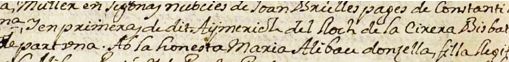 a, Muller en segonas nubcies de Joan Brielles pages de Constanti
na, y en primeras de dit Aymerich del Roch de la Cirera Bisbat
de part una. Ab la honesta Maria Alibau donsella, filla llegit